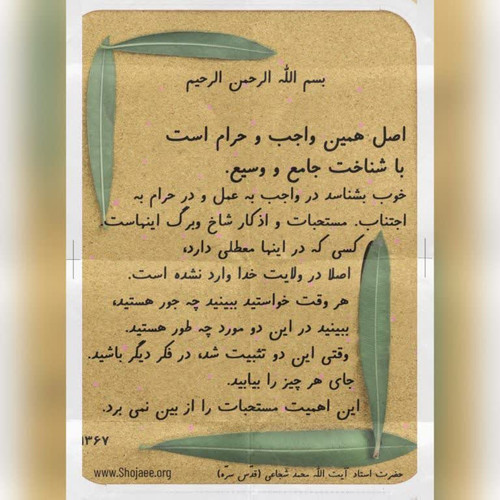 بسم الله الرحمن الرحیم
اصل همین واجب و حرام است
با شناخت جامع و وسیع.
خوب بشناسد در واجب به عمل و در حرام به
اجتناب. مستحبات و اذکار شاخ وبرگ اینهاست.
کسی که در اینها معطلی دارد،
اصلا در ولایت خدا وارد نشده است.
هر وقت خواستید ببینید چه جور هستید،
ببینید در این دو مورد چه طور هستید.
وقتی این دو تثبیت شد، در فکر دیگر باشید.
جای هر چیز را بیابید.
این اهمیت مستحبات را از بین نمی برد.
۱۳۶۷
حضرت استاد آیت الله محمد شجاعی (قدّس سرّه)
www.Shojaee.org